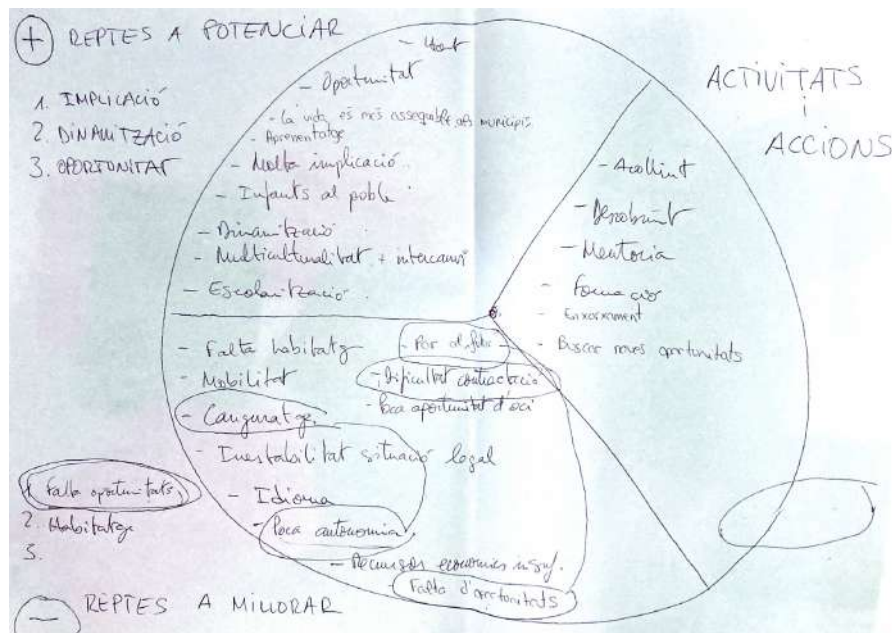 + REPTES A POTENCIAR
1. IMPLICACIÓ
2. DINAMITZACIÓ
3. OPORTUNITAT
- Oportunitat
- La vida és més assequible als municipis
- Aprenentatge
- Molta implicació
- Infants al poble
- Dinamització
- Multiculturalitat + intercanvi
- Escolarització
ACTIVITATS
i
ACCIONS
- Acollint
- Descobrint
- Mentoria
- Formació
- Enxarxament
- Buscar noves oportunitats
- Falta habitatge
- Mobilitat
- Canguratge
- Inestabilitat situació legal
- Idioma
- Poca autonomia
- Recursos econòmics insuf.
- Falta d'oportunitats
- Por al futur
- Dificultat contractació
- Poca oportunitat d'oci
1. Falta oportunitats
2. Habitatge
3.
- REPTES A MILLORAR